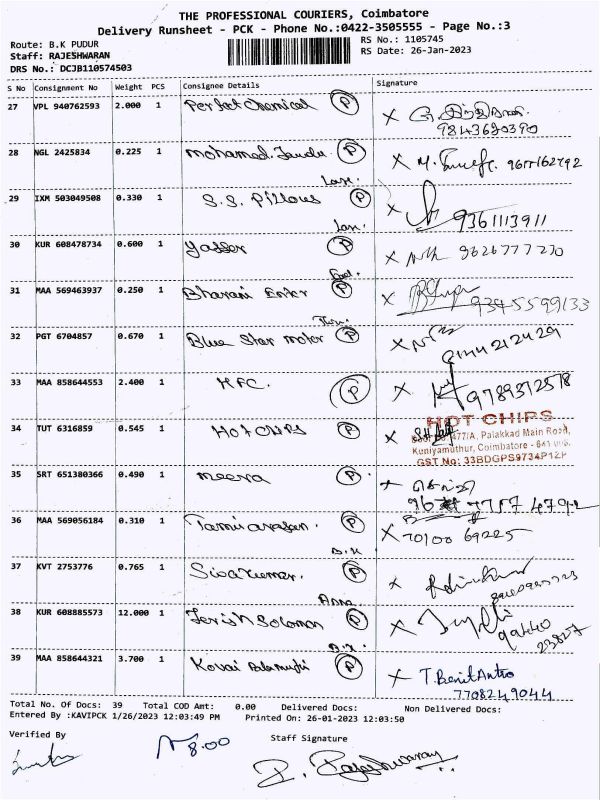 THE PROFESSIONAL COURIERS, Coimbatore
Delivery Runsheet - PCK - Phone No.:0422-3505555 - Page No.:3
Route: B.K PUDUR
RS No.: 1105745
Staff: RAJESHWARAN
RS Date: 26-Jan-2023
DRS No.: DCJB110574503
S No Consignment No Weight PCS Consignee Details Signature
27 VPL 940762593 2.000 1 Perfect Chemical P X
9843620390
28 NGL 2425834 0.225 1 Mohamed P X M. 9677162792
29 IXM 503049508 0.330 1 S.S. Pillows P X 9361113911
30 KUR 608478734 0.600 1 Yasser P X 9626777270
31 MAA 569463937 0.250 1 Bharani Enter P X 9345599133
32 PGT 6704857 0.670 1 Blue Star Motor P X
33 MAA 858644553 2.400 1 HFC. P X 9789372578
34 TUT 6316859 0.545 1 Hot Chips P X
HOT CHIPS
477/A, Palakkad Main Road,
Kuniyamuthur, Coimbatore - 641 008.
GST No: 33BDGPS9734P1ZP
35 SRT 651380366 0.490 1 Meera P X
36 MAA 569056184 0.310 1 Tamilarasan. P X 70100 69225
B.K
37 KVT 2753776 0.765 1 Sivakumar. P X
Anna
38 KUR 608885573 12.000 1 Jerish Solomon P X
39 MAA 858644321 3.700 1 Kovai P X T. Benit Antro
7708249044
Total No. Of Docs: 39 Total COD Amt: 0.00 Delivered Docs: Non Delivered Docs:
Entered By :KAVIPCK 1/26/2023 12:03:49 PM Printed On: 26-01-2023 12:03:50
Verified By
Staff Signature
8.00